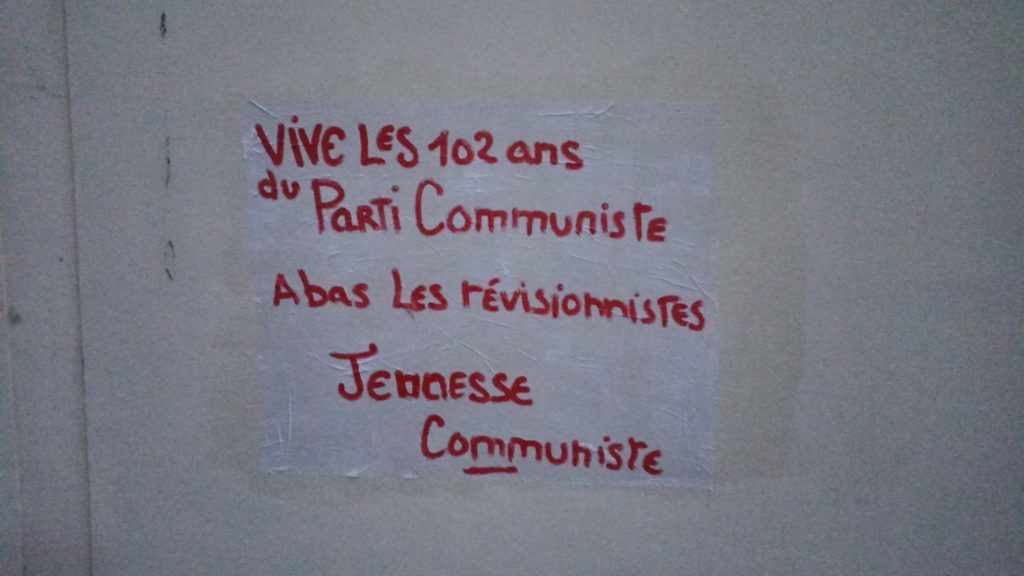 VIVE LES 102 ans
du Parti Communiste
Abas Les révisionnistes
Jeunesse
Communiste